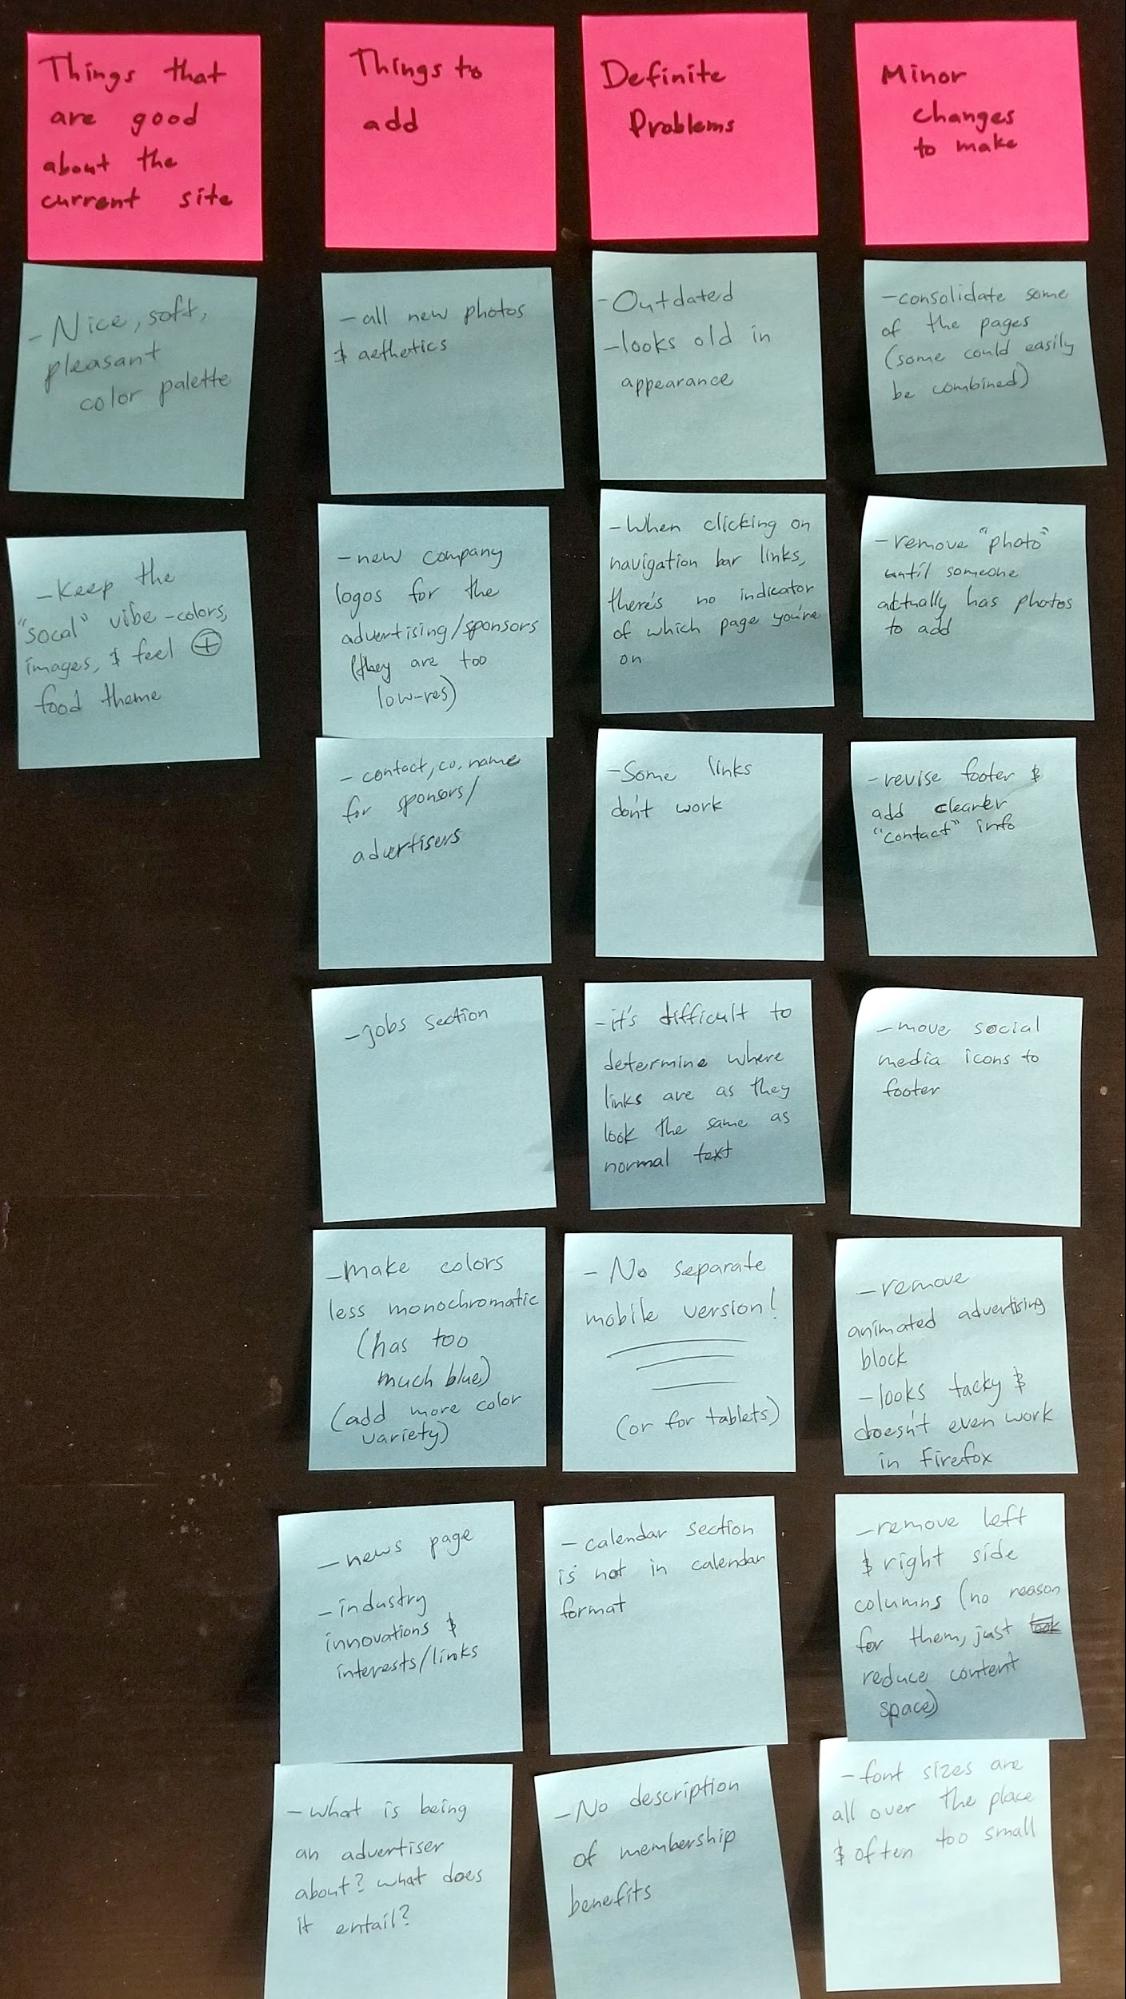 Things that
are good
about the
current site
- Nice, soft,
pleasant
color palette
- Keep the
"socal" vibe - colors,
images, & feel ⊕
food theme
Things to
add
- all new photos
& aethetics
- new company
logos for the
advertising/sponsors
(they are too
low-res)
- contact, co. name
for sponsors/
advertisers
- jobs section
- make colors
less monochromatic
(has too
much blue)
(add more color
variety)
- news page
- industry
innovations &
interests/links
- what is being
an advertiser
about? what does
it entail?
Definite
Problems
- Outdated
- looks old in
appearance
- When clicking on
navigation bar links,
there's no indicator
of which page you're
on
- Some links
don't work
- it's difficult to
determine where
links are as they
look the same as
normal text
- No separate
mobile version!
(or for tablets)
- calendar section
is not in calendar
format
- No description
of membership
benefits
Minor
changes
to make
- consolidate some
of the pages
(some could easily
be combined)
- remove "photo"
until someone
actually has photos
to add
- revise footer &
add clearer
"contact" info
- move social
media icons to
footer
- remove
animated advertising
block
- looks tacky &
doesn't even work
in Firefox
- remove left
& right side
columns (no reason
for them, just
reduce content
space)
- font sizes are
all over the place
& often too small